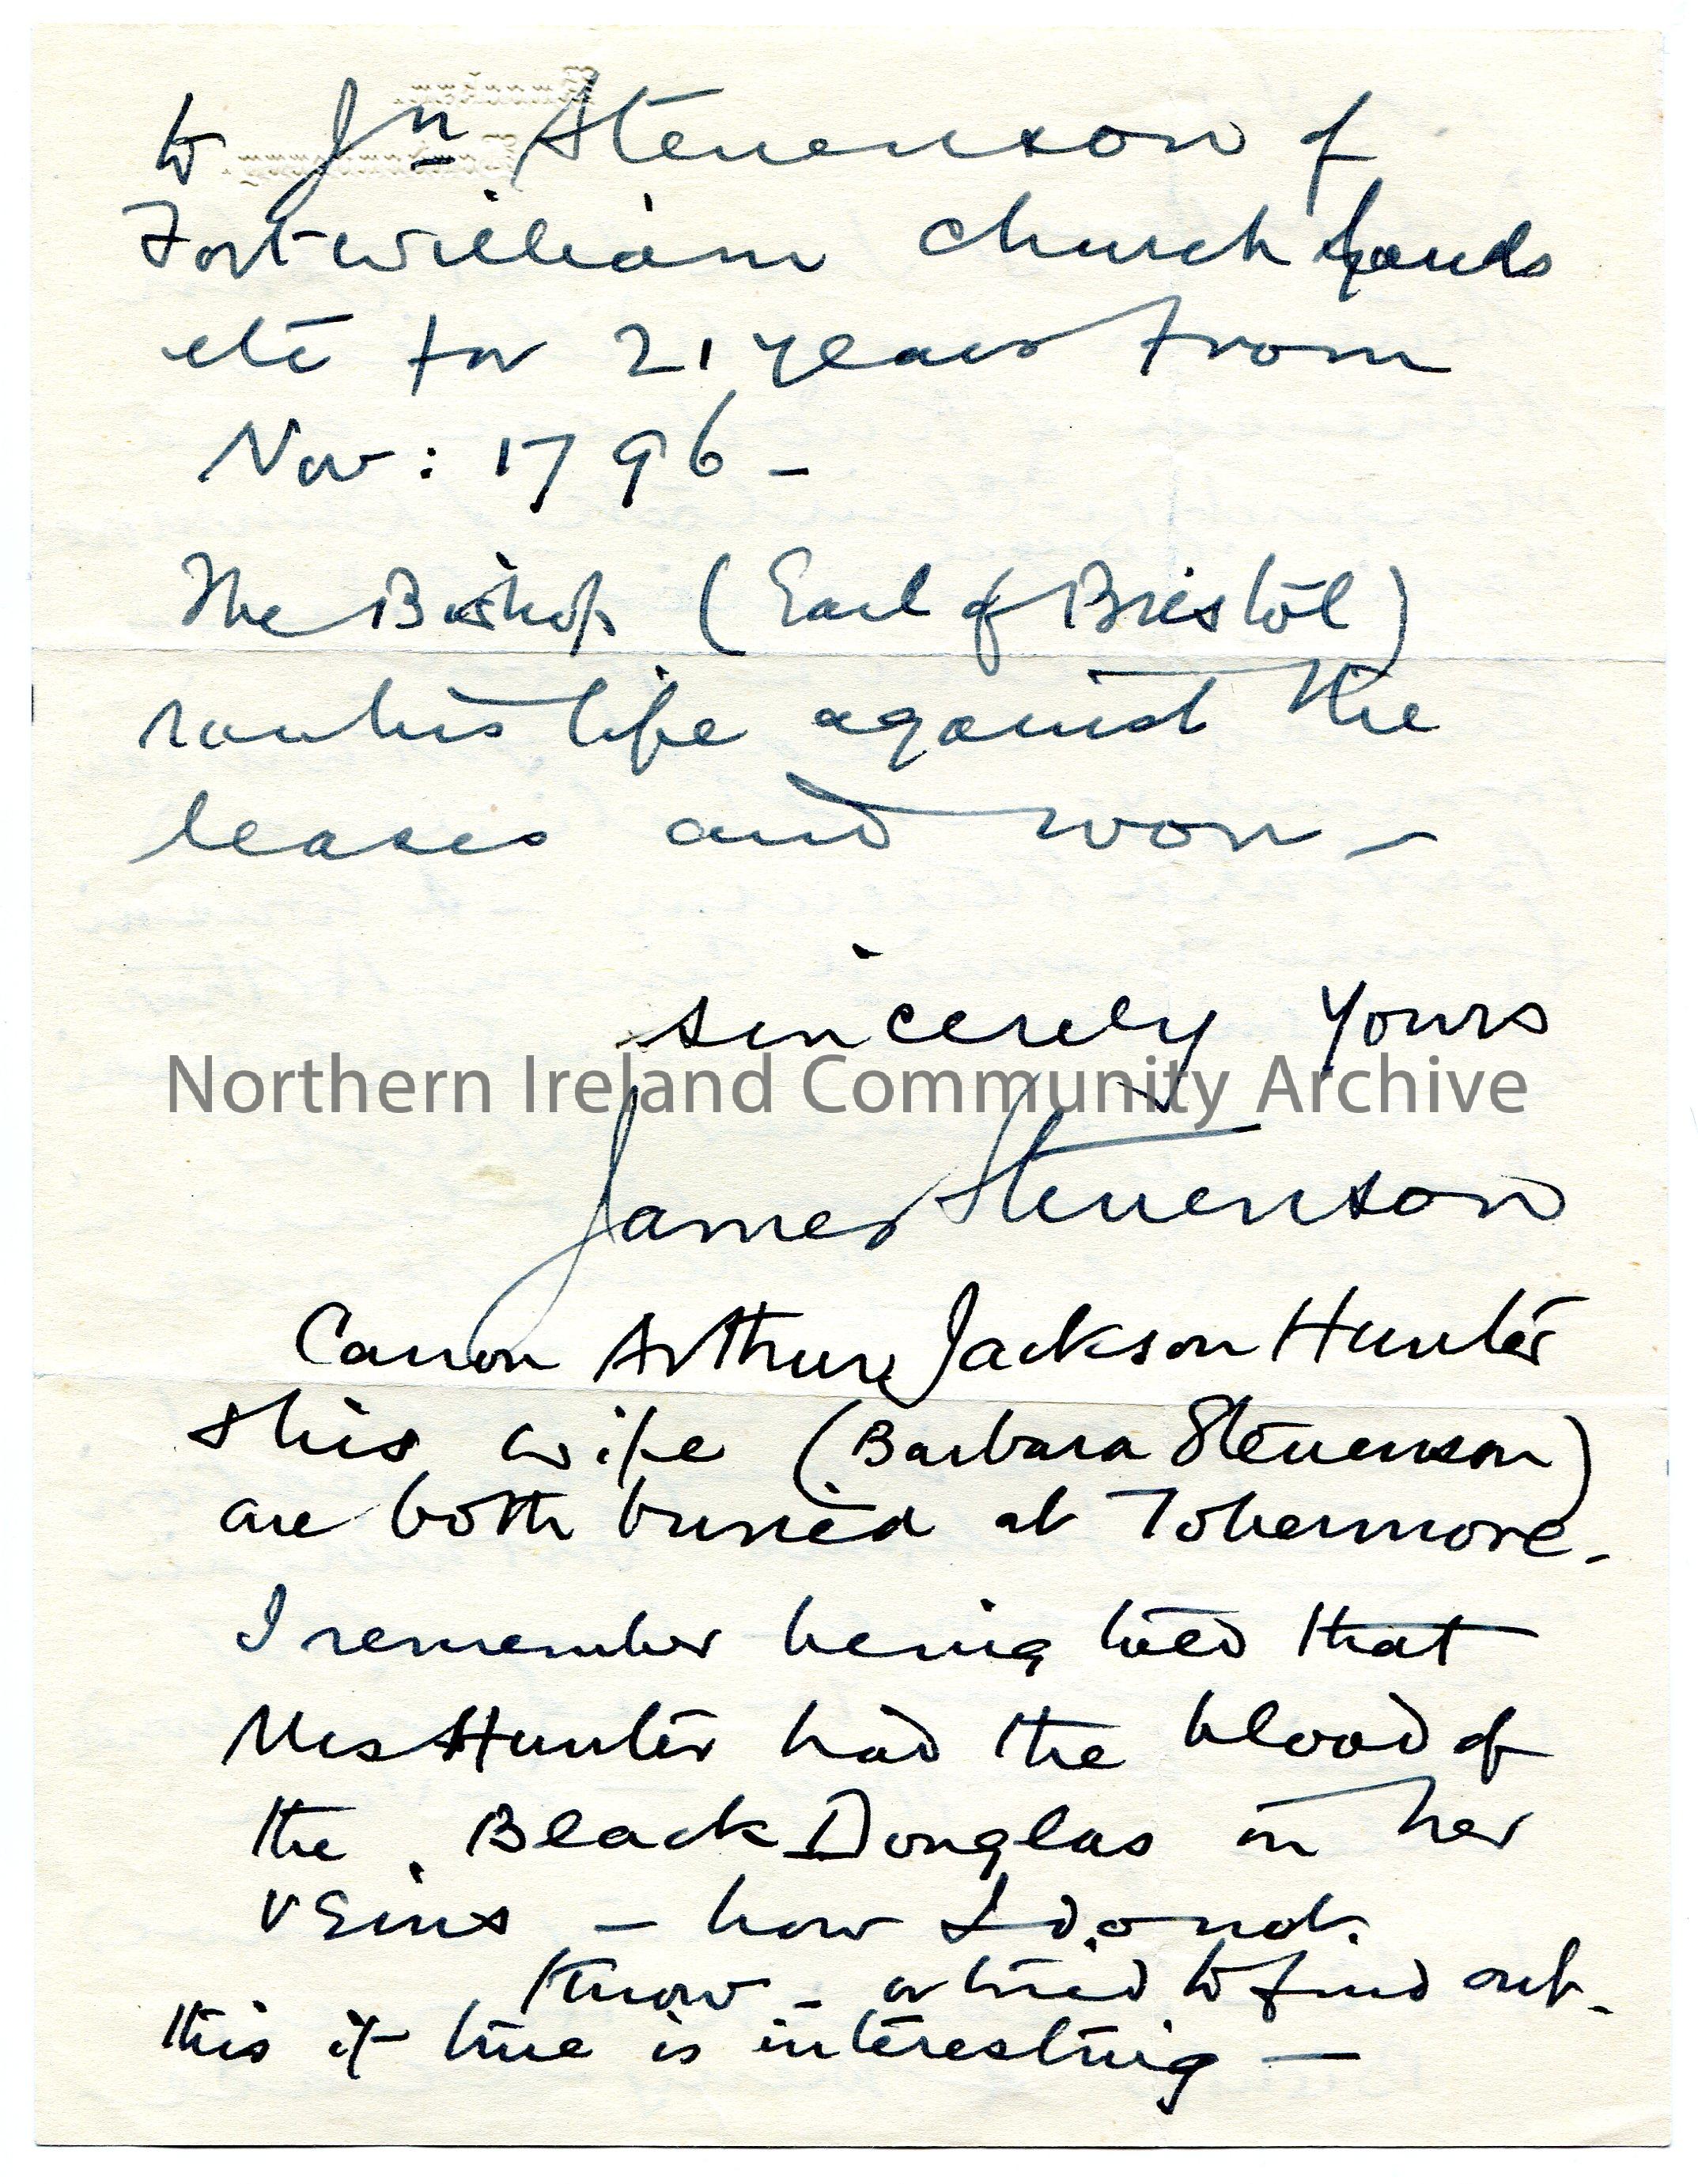 to Jn Stevenson of
Fortwilliam church lands
etc for 21 years from
Nov: 1796 –
The Bishop (Earl of Bristol)
ran his life against the
leases and won –
sincerely yours
Northern Ireland Community Archive
James Stevenson
Canon Arthur Jackson Hunter
& his wife (Barbara Stevenson)
are both buried at Tobermore.
I remember being told that
Mrs Hunter had the blood of
the Black Douglas in her
veins – how I do not
know – or tried to find out.
this if true is interesting –